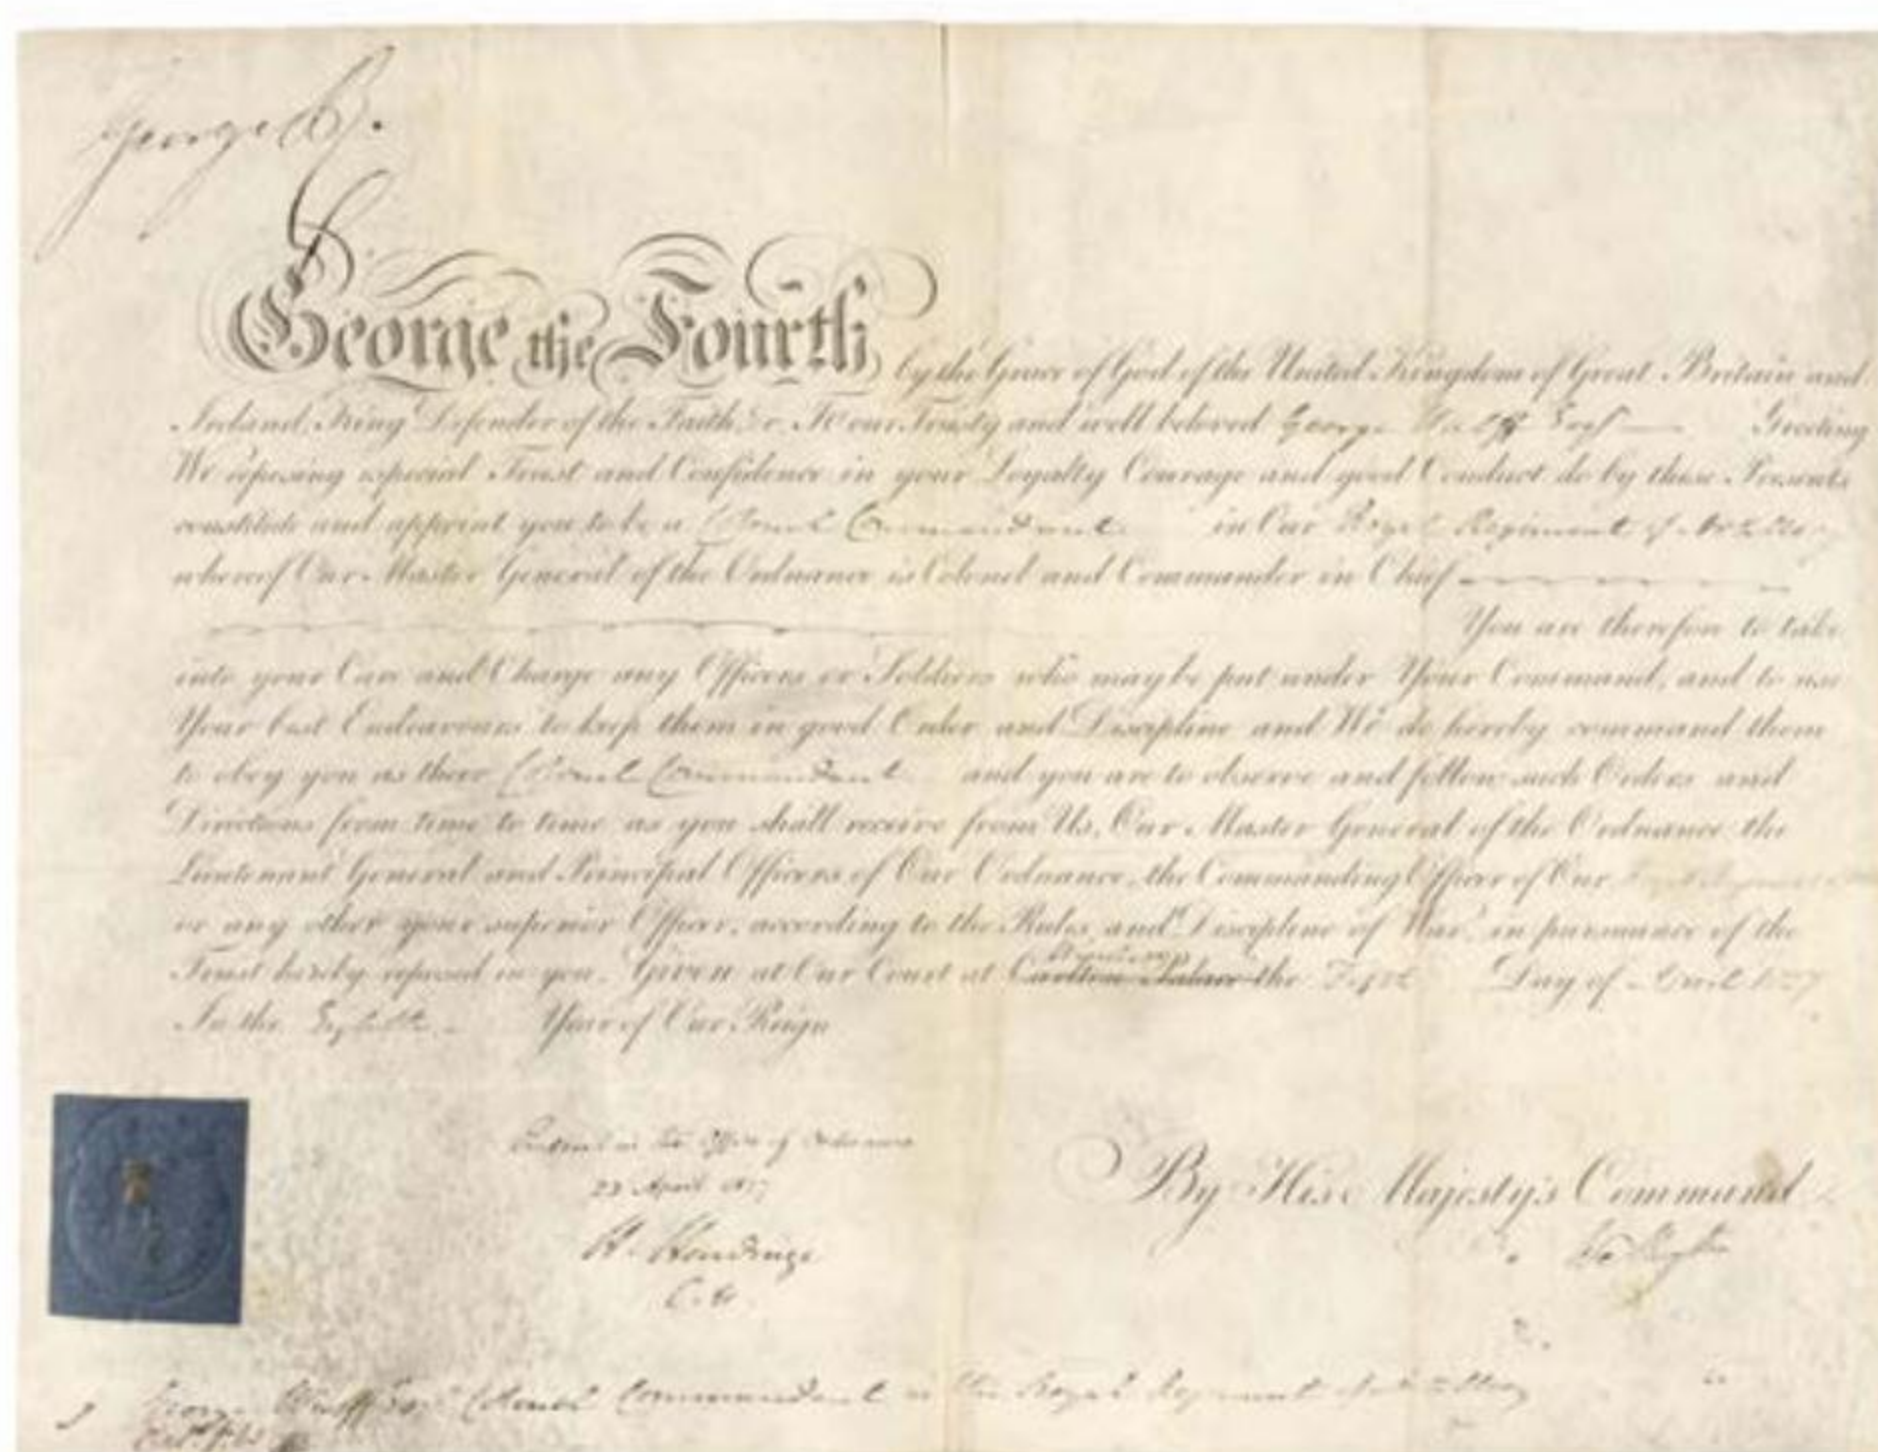 George R.
George the Fourth by the Grace of God of the United Kingdom of Great Britain and
Ireland, King Defender of the Faith, &c. To our Trusty and well beloved George Wulff Esq Greeting
We reposing especial Trust and Confidence in your Loyalty Courage and good Conduct do by these Presents
constitute and appoint you to be a Colonel Commandant in Our Royal Regiment of Artillery
whereof Our Master General of the Ordnance is Colonel and Commander in Chief
You are therefore to take
into your Care and Charge any Officers or Soldiers who may be put under Your Command, and to use
Your best Endeavours to keep them in good Order and Discipline and We do hereby command them
to obey you as their Colonel Commandant and you are to observe and follow such Orders and
Directions from time to time as you shall receive from Us, Our Master General of the Ordnance the
Lieutenant General and Principal Officers of Our Ordnance, the Commanding Officer of Our
or any other your superior Officer, according to the Rules and Discipline of War, in pursuance of the
Trust hereby reposed in you. Given at Our Court at Carlton Palace the Day of April 1827
In the Eighth Year of Our Reign
Entered in the Office of Ordnance
23 April 1827
H. Hardinge
C.S.
By His Majesty's Command
George Wulff Esqr Colonel Commandant in the Royal Regiment of Artillery